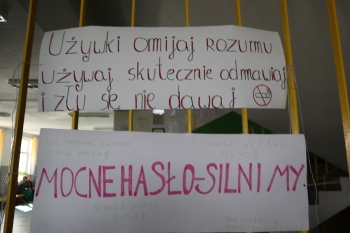 Używki omijaj rozumu
używaj, skutecznie odmawiaj
i złu się nie dawaj
MOCNE HASŁO-SILNI MY.